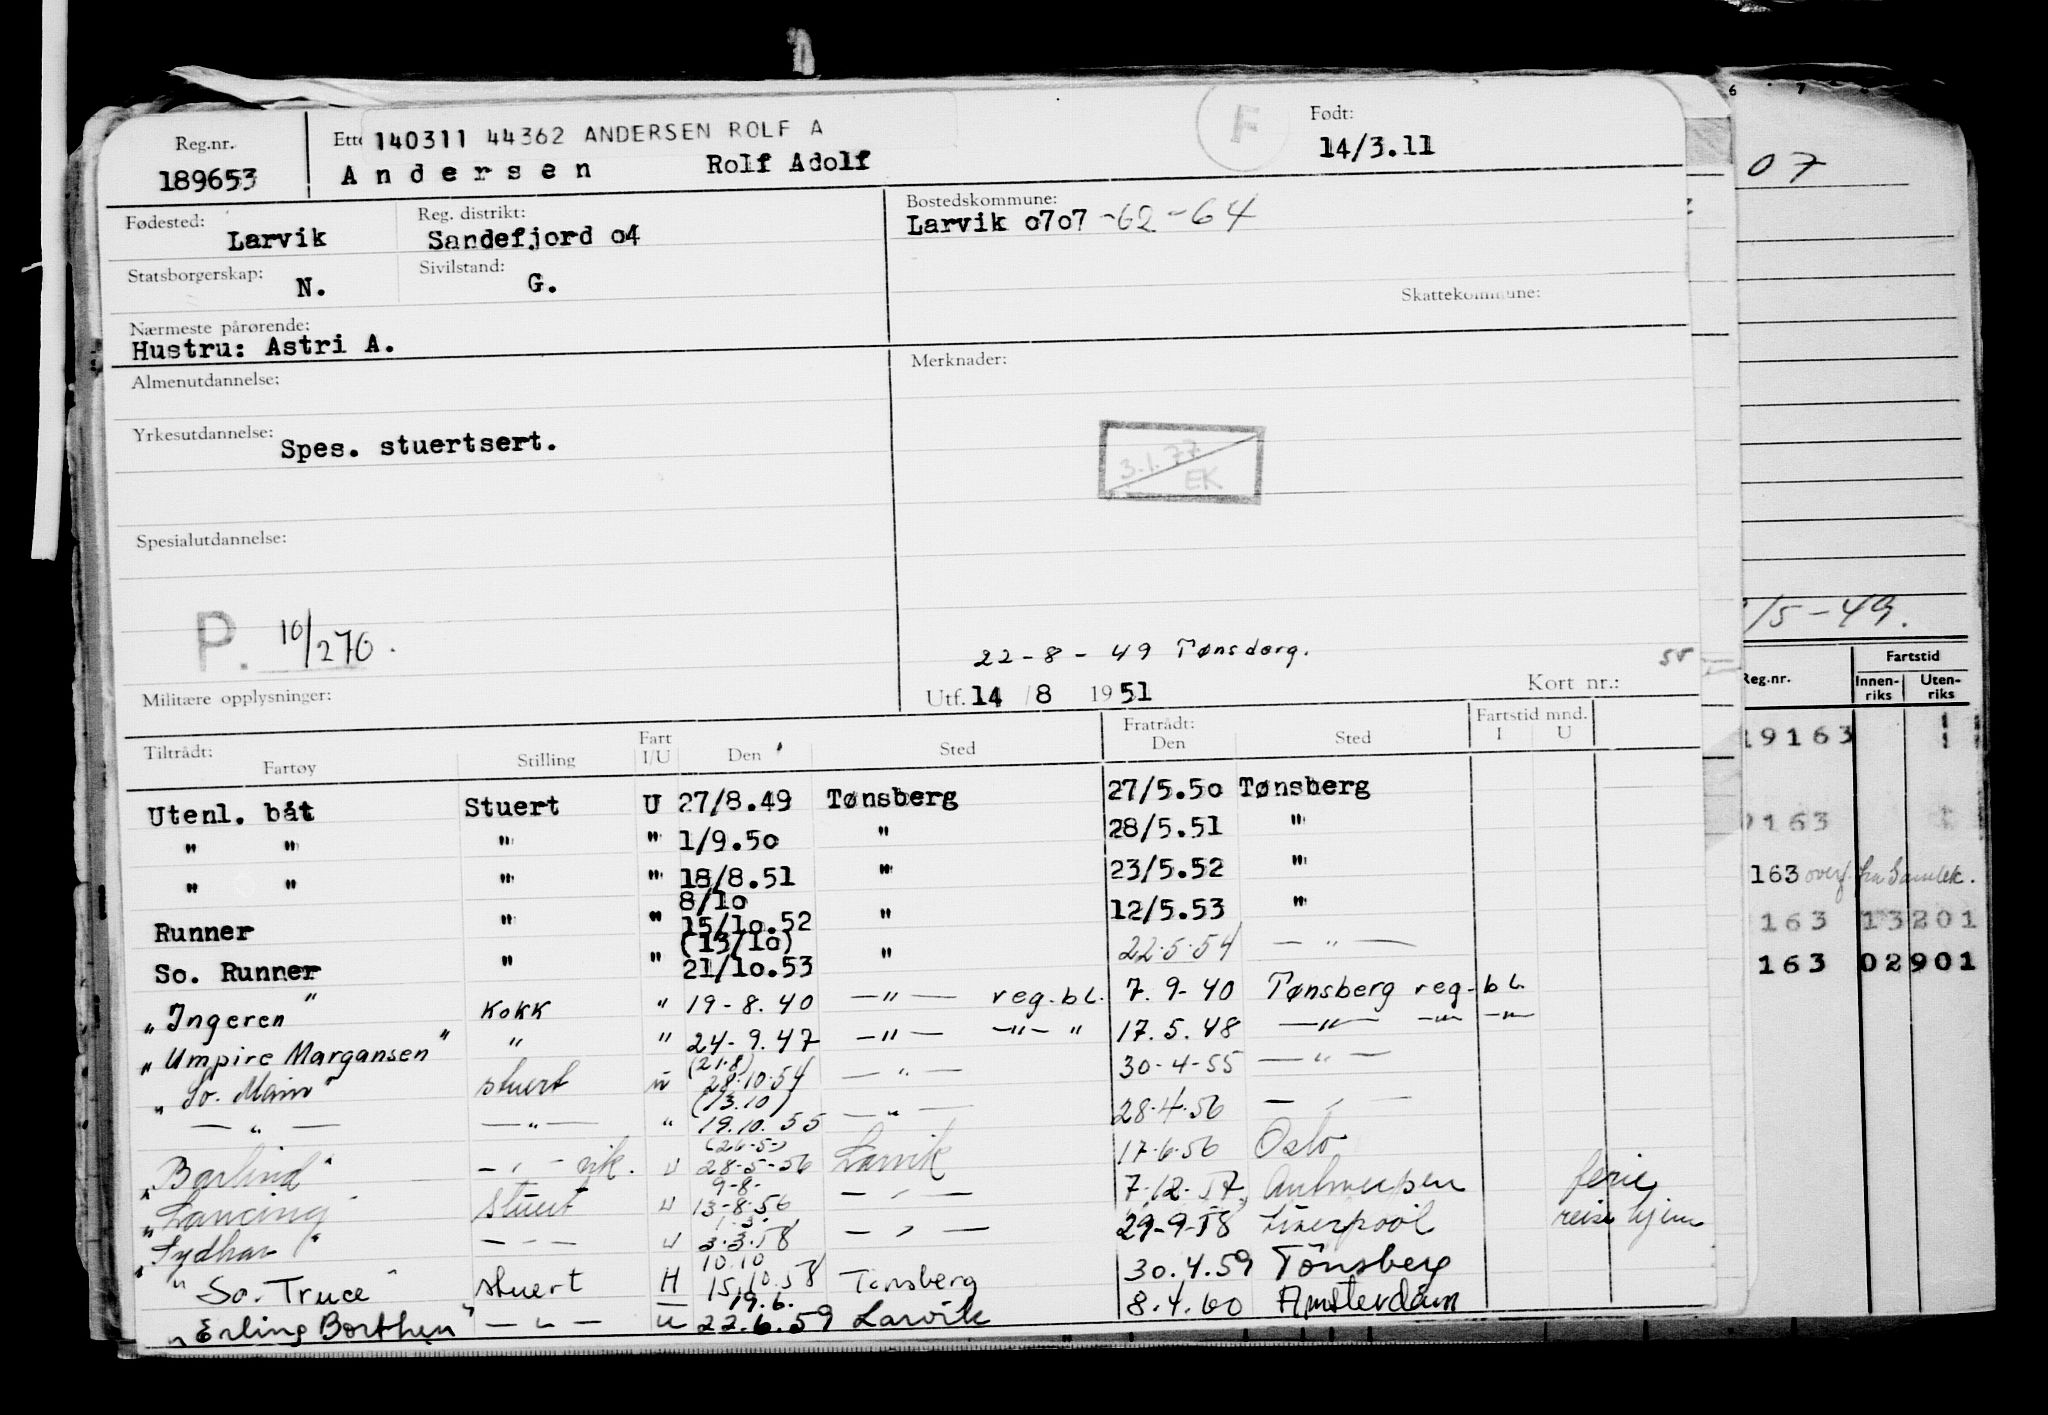 Reg.nr. 189653
Ette 140311 44362 ANDERSEN ROLF A
Andersen Rolf Adolf
F
Født: 14/3.11
Fødested: Larvik
Reg. distrikt: Sandefjord o4
Bostedskommune: Larvik o7o7 -62-64
Statsborgerskap: N.
Sivilstand: G.
Skattekommune:
Nærmeste pårørende:
Hustru: Astri A.
Almenutdannelse:
Merknader:
Yrkesutdannelse: Spes. stuertsert.
3.1.77
EK
Spesialutdannelse:
P. 10/270.
22-8-49 Tønsberg.
55
Militære opplysninger:
Utf. 14/8 1951 Kort nr.:
Tiltrådt: Fartøy Stilling Fart I/U Den Sted Fratrådt: Den Sted Fartstid mnd. I U
Utenl. båt Stuert U 27/8.49 Tønsberg 27/5.5o Tønsberg
" " " " 1/9.5o " 28/5.51 "
" " " " 18/8.51 " 23/5.52 "
8/1o
Runner " " 15/1o.52 " 12/5.53 "
(13/1o)
So. Runner " " 21/1o.53 " 22.5.54 — " —
"Ingeren" Kokk " 19-8.40 —"— reg.bl. 7.9-40 Tønsberg reg.bl.
"Umpire Margansen" " " 24-9.47 —"— —"— " 17.5.48 —"— —"— —"—
(21.8)
"So. Main" stuert u 28.10.54 — " — 30-4-55 — " —
(13.10)
— " — — " — " 19.10.55 — " — 28.4.56 — " —
(26-5-)
"Barlind" — " — vik. u 28-5-56 Larvik 17.6.56 Oslo
9-8-
"Lancing" stuert u 13-8-56 — " — 7.12.57 Antwerpen ferie
1.3.
"Sydhav" — " — u 3.3.58 — " — 29-9-58 Liverpool reise hjem
10.10
"So. Truce" stuert H 15.10.58 Tønsberg 30.4.59 Tønsberg
19.6.
"Erling Borthen" — " — u 22.6.59 Larvik 8.4.60 Amsterdam
6 7
07
/5-49.
Reg.nr. Fartstid
Innen-riks Uten-riks
19163
9163
163 overf. fra Samlek.
163 13201
163 02901